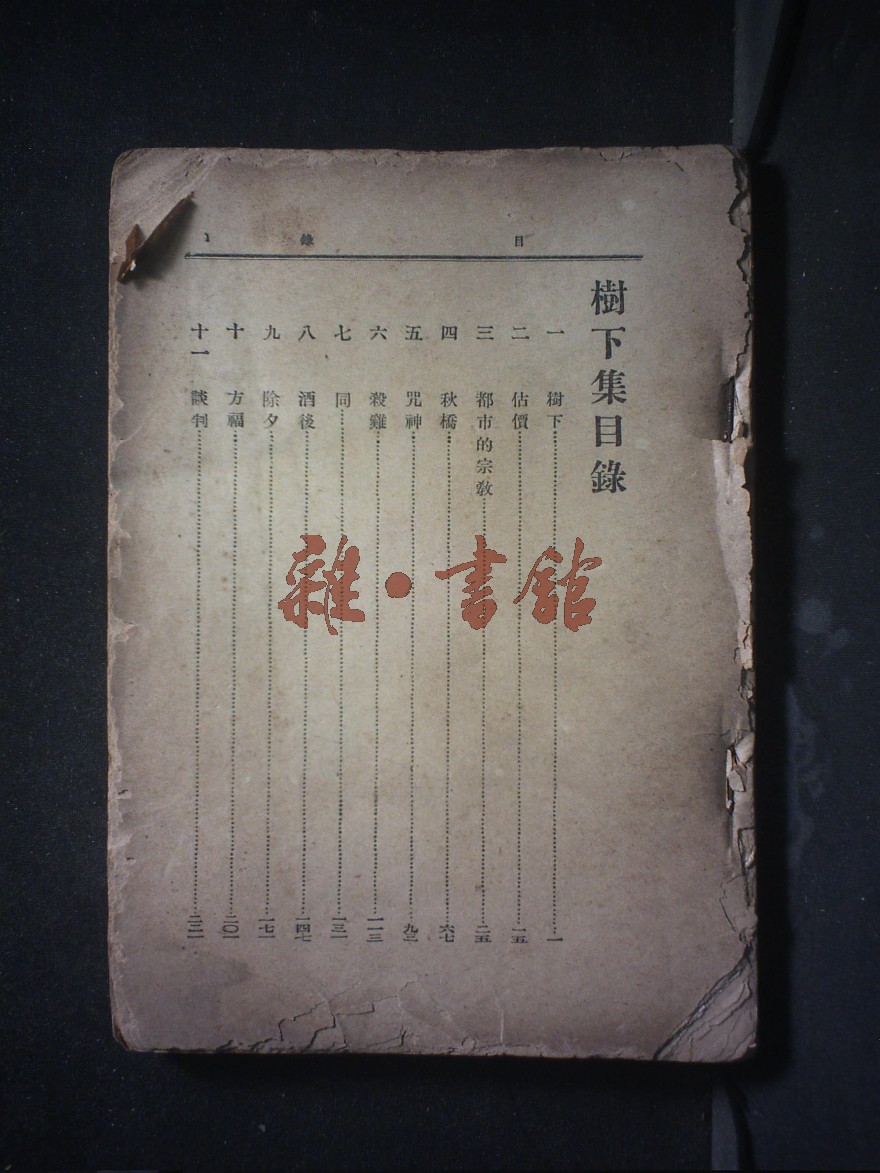 目錄
樹下集目錄
一 樹下……一
二 估價……一五
三 都市的宗敎……二五
四 秋橋……六七
五 咒神……九三
六 殺雞……一一三
七 同……一三一
八 酒後……一四七
九 除夕……一七一
十 方福……二〇一
十一 談判……二三一
雜·書館